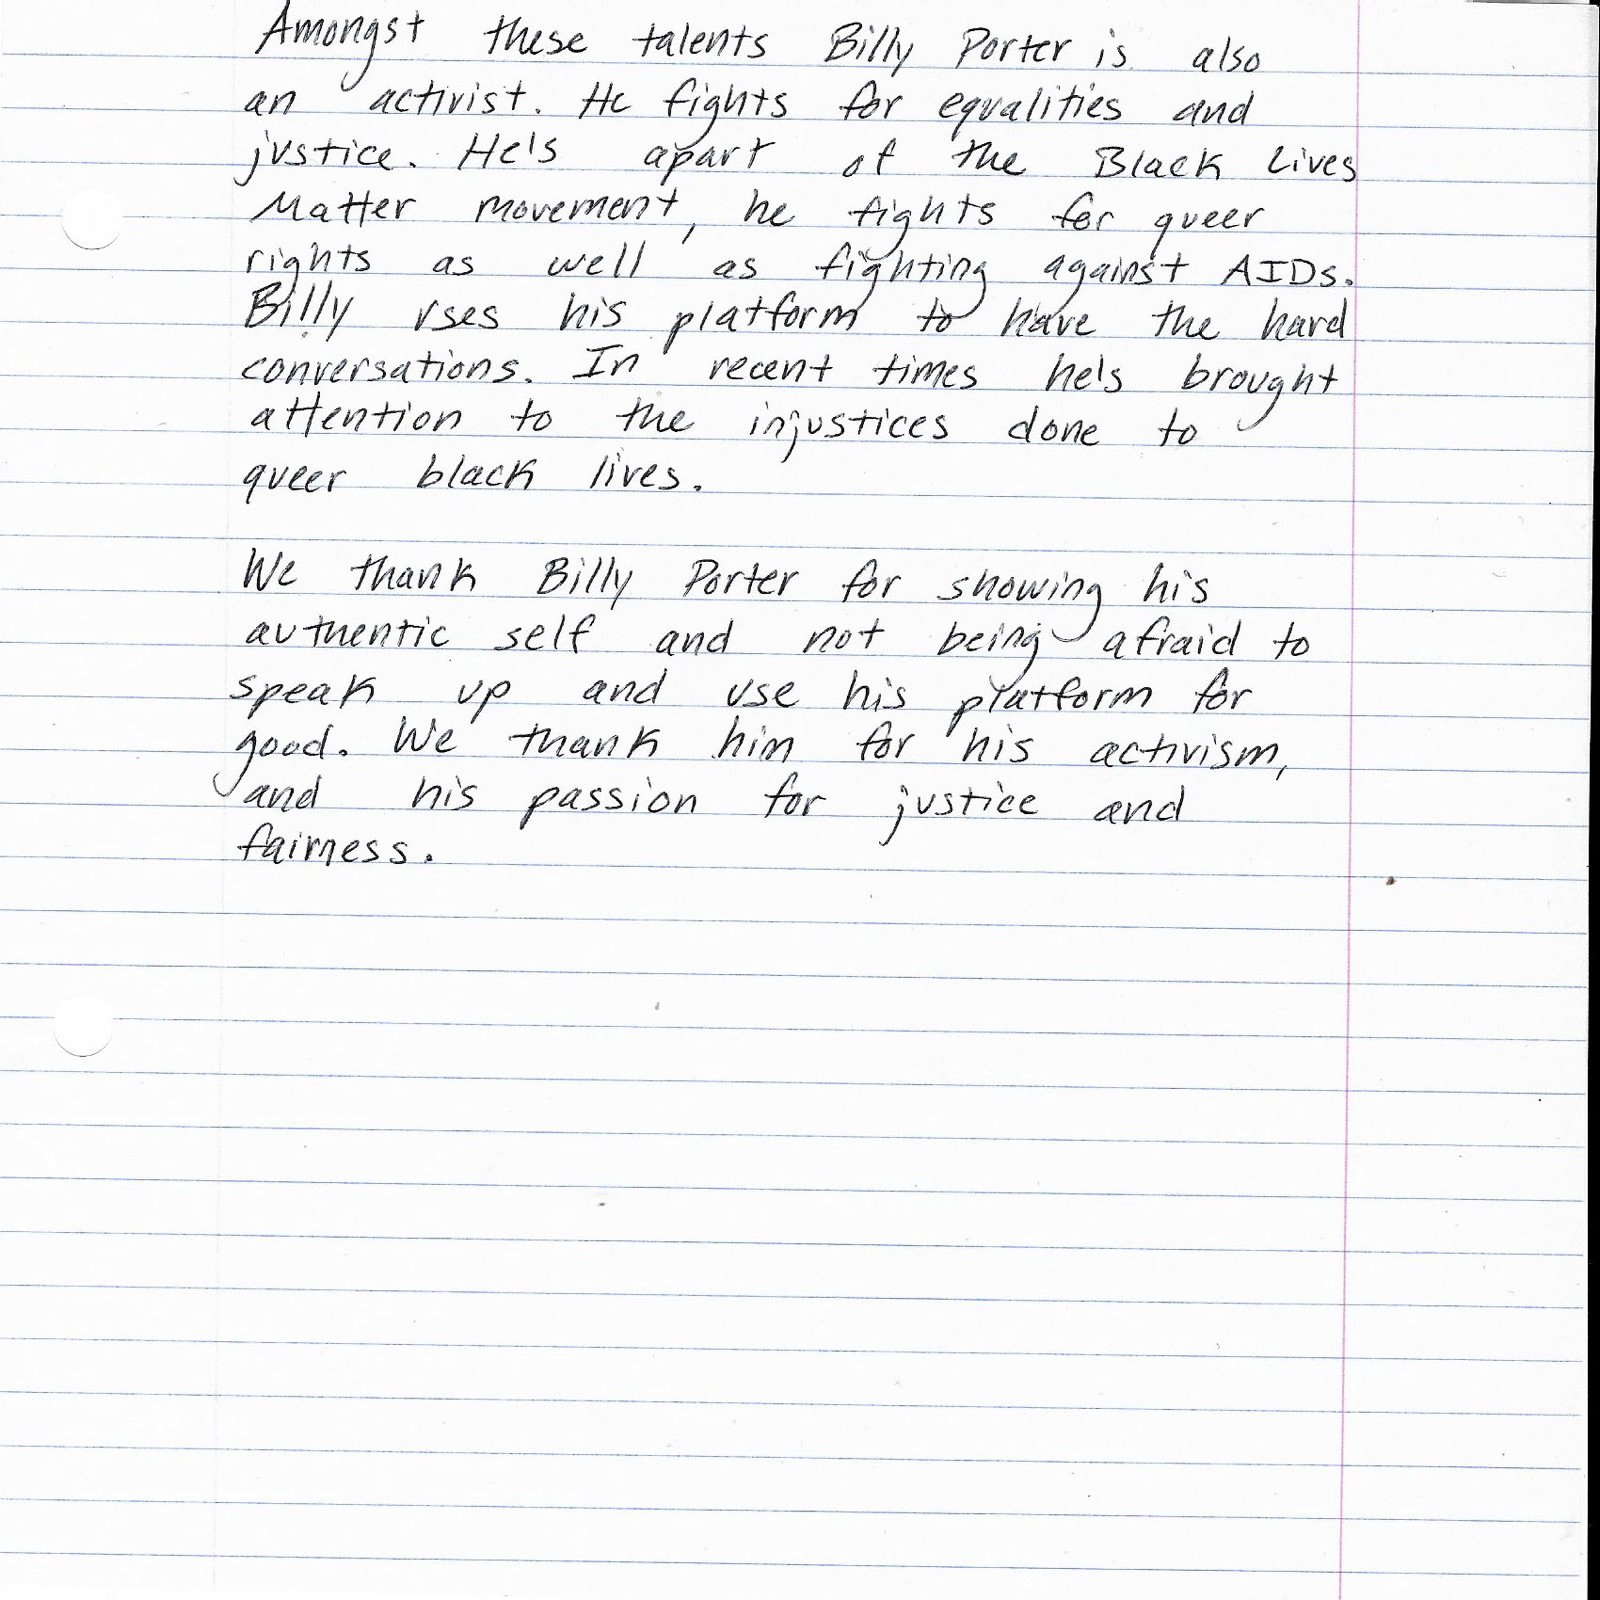 Amongst these talents Billy Porter is also
an activist. He fights for equalities and
justice. He's apart of the Black Lives
Matter movement, he fights for queer
rights as well as fighting against AIDs.
Billy uses his platform to have the hard
conversations. In recent times he's brought
attention to the injustices done to
queer black lives.
We thank Billy Porter for showing his
authentic self and not being afraid to
speak up and use his platform for
good. We thank him for his activism,
and his passion for justice and
fairness.